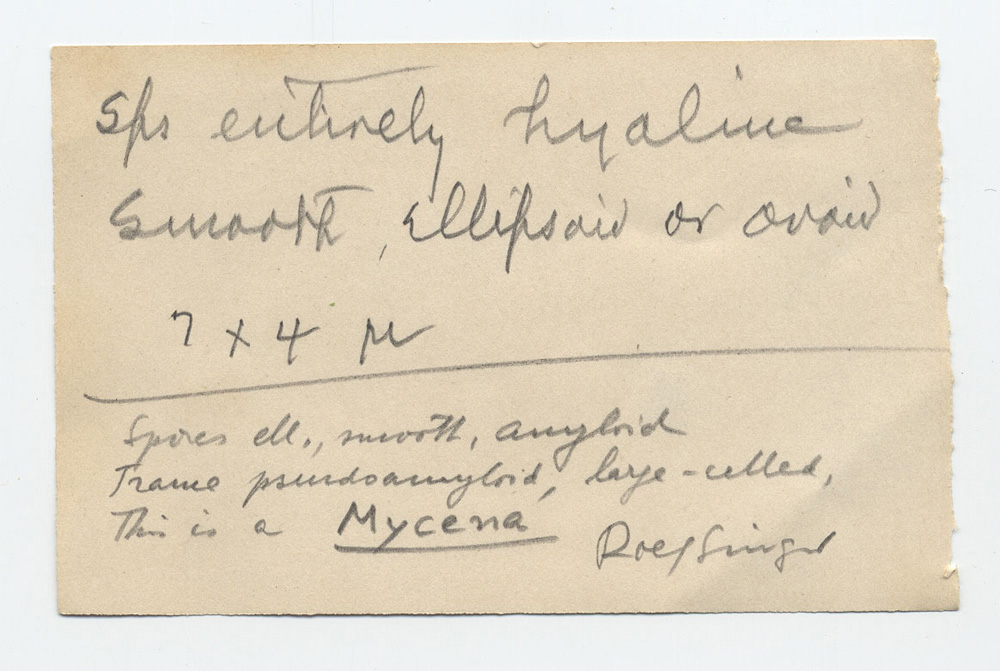 Sps entirely hyaline
smooth, ellipsoid or ovoid
7 x 4 µ
Spores ell., smooth, amyloid
Trame pseudoamyloid, large-celled,
This is a Mycena
Rolf Singer